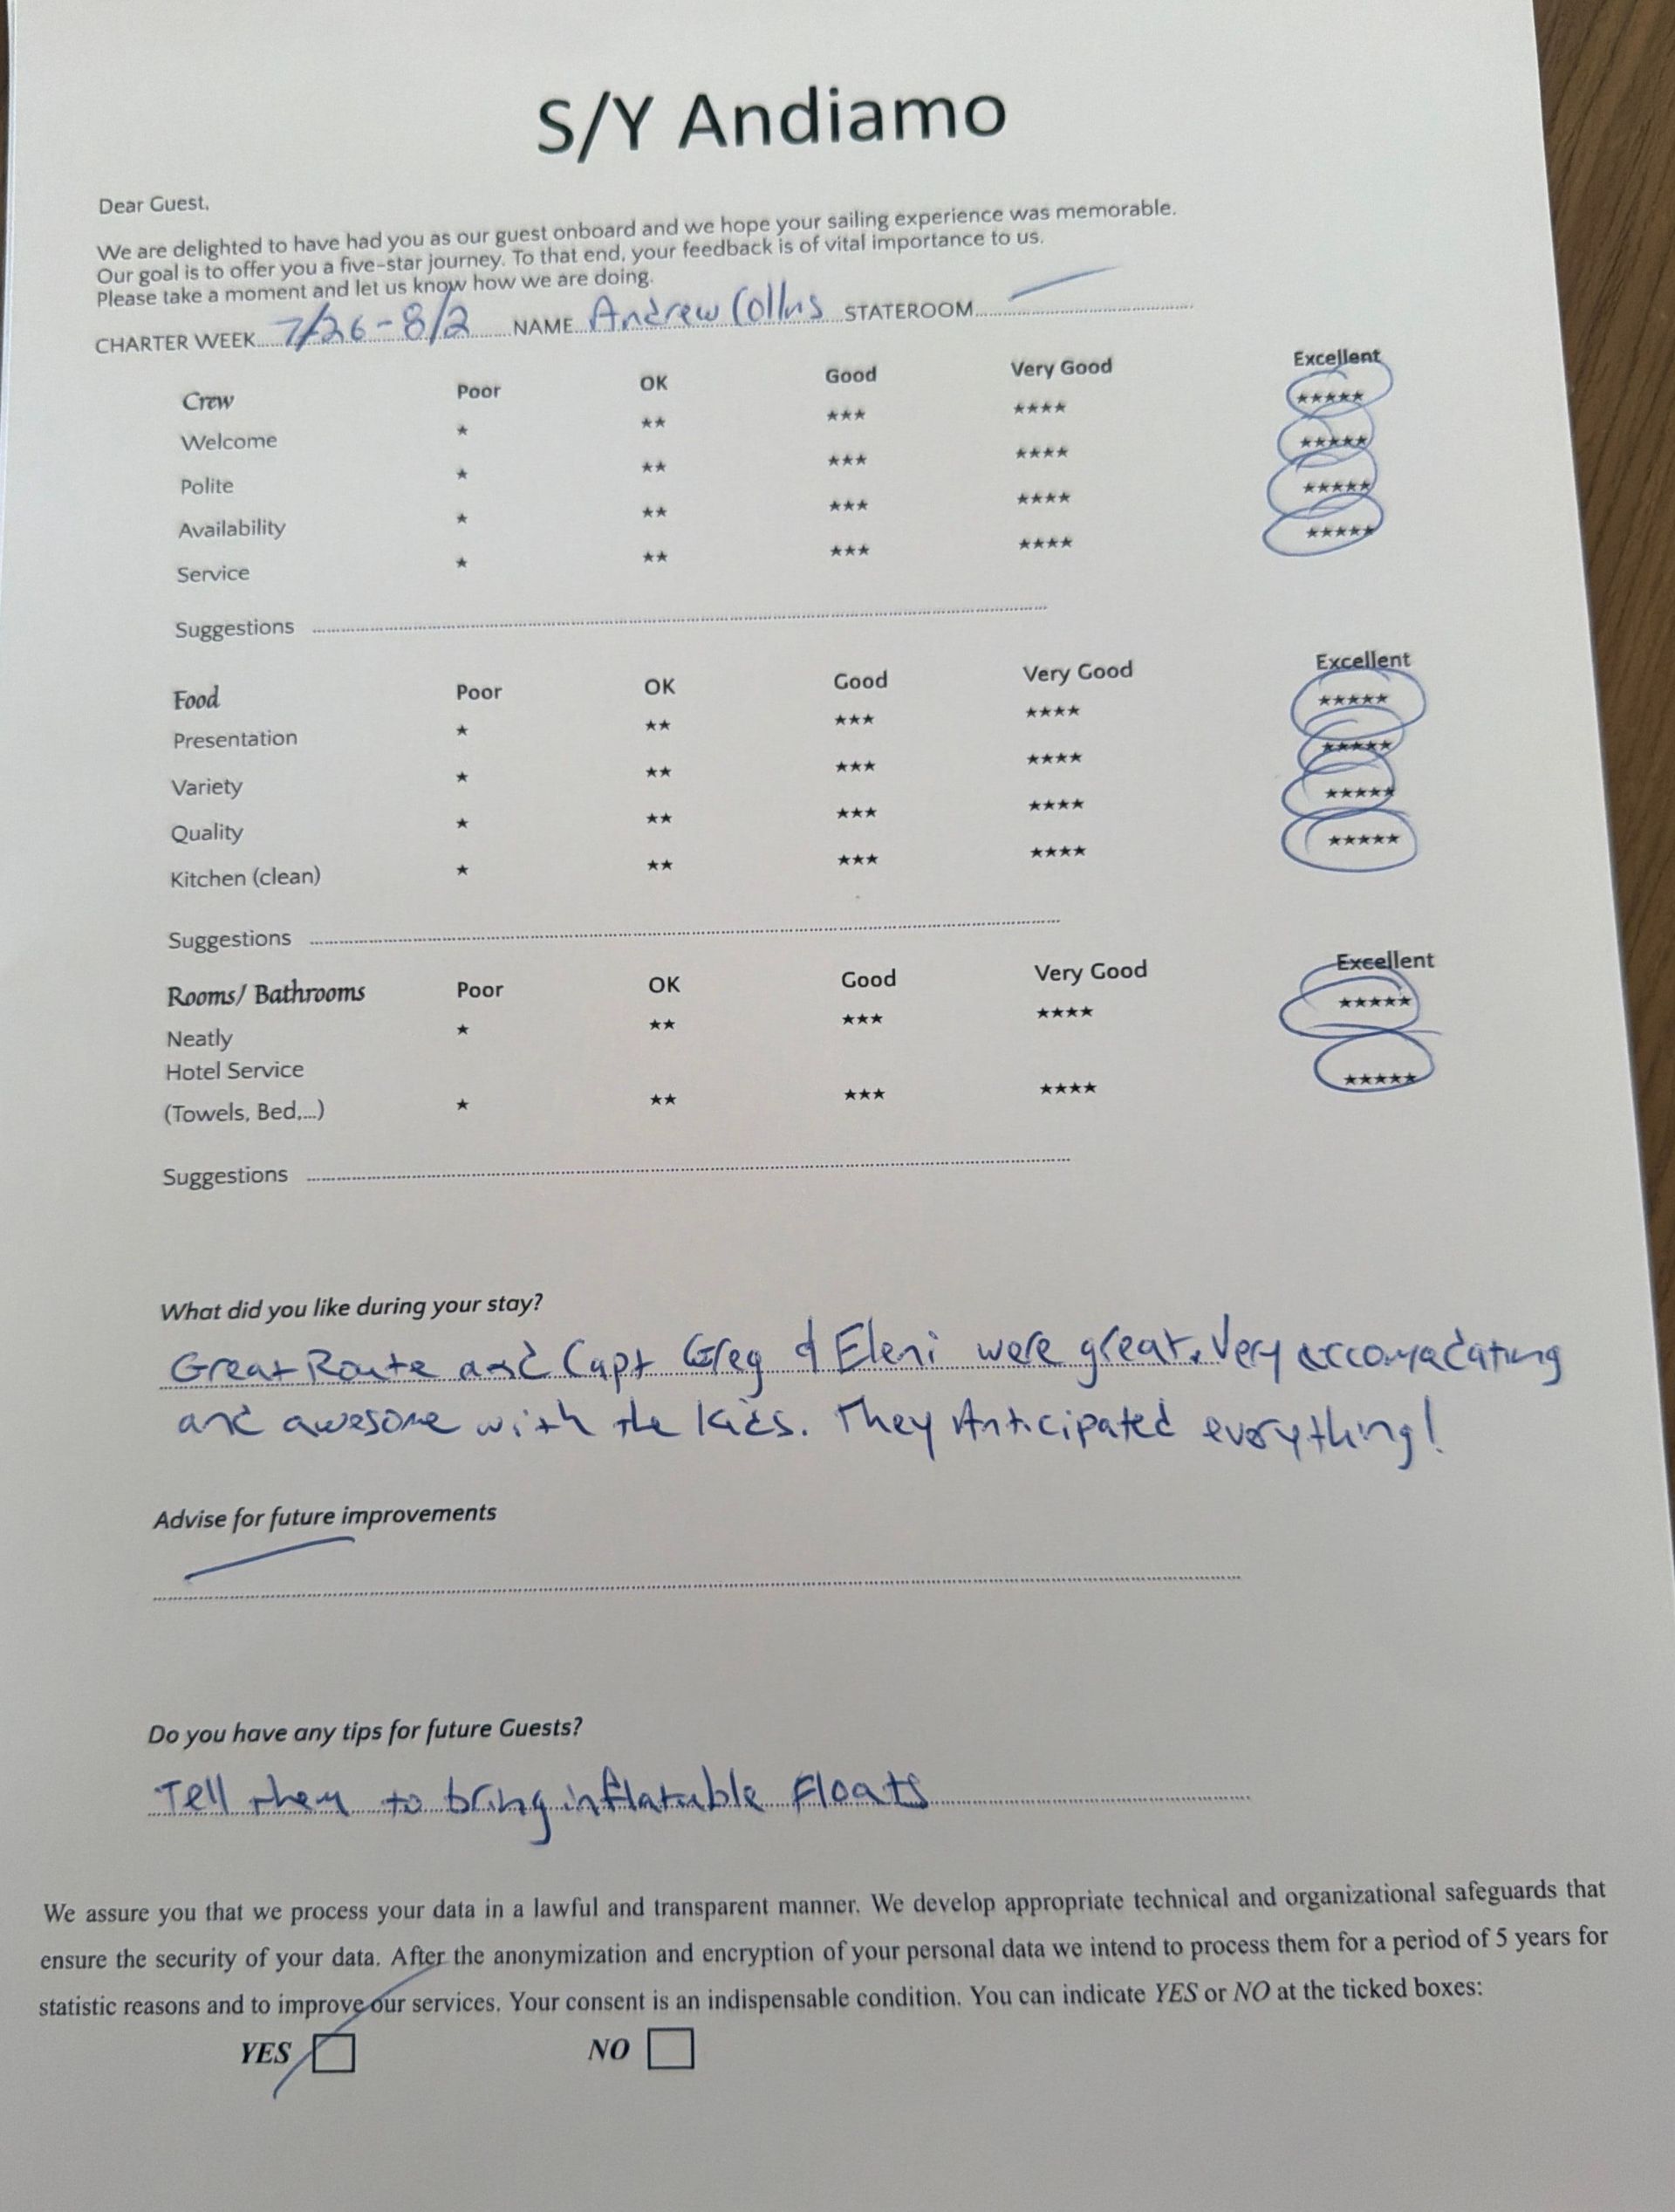 S/Y Andiamo
Dear Guest,
We are delighted to have had you as our guest onboard and we hope your sailing experience was memorable.
Our goal is to offer you a five-star journey. To that end, your feedback is of vital importance to us.
Please take a moment and let us know how we are doing.
CHARTER WEEK 7/26-8/2 NAME Andrew Collins STATEROOM
Crew Poor OK Good Very Good Excellent
Welcome * ** *** **** *****
Polite * ** *** **** *****
Availability * ** *** **** *****
Service * ** *** **** *****
Suggestions
Food Poor OK Good Very Good Excellent
Presentation * ** *** **** *****
Variety * ** *** **** *****
Quality * ** *** **** *****
Kitchen (clean) * ** *** **** *****
Suggestions
Rooms/ Bathrooms Poor OK Good Very Good Excellent
Neatly * ** *** **** *****
Hotel Service
(Towels, Bed,...) * ** *** **** *****
Suggestions
What did you like during your stay?
Great Route and Capt Greg & Eleni were great. Very accomadating
and awesome with the kids. They Anticipated everything!
Advise for future improvements
Do you have any tips for future Guests?
Tell them to bring inflatable Floats
We assure you that we process your data in a lawful and transparent manner. We develop appropriate technical and organizational safeguards that
ensure the security of your data. After the anonymization and encryption of your personal data we intend to process them for a period of 5 years for
statistic reasons and to improve our services. Your consent is an indispensable condition. You can indicate YES or NO at the ticked boxes:
YES NO